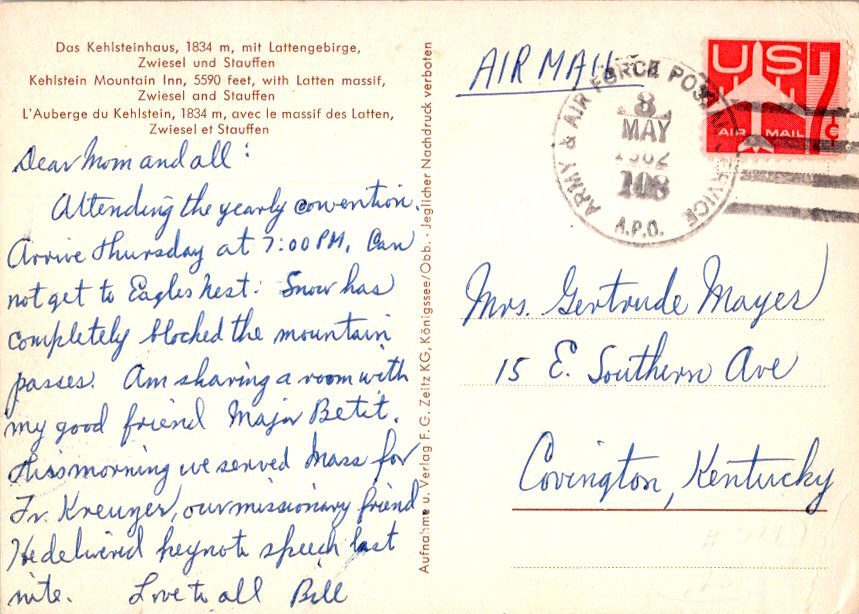 Das Kehlsteinhaus, 1834 m, mit Lattengebirge,
Zwiesel und Stauffen
Kehlstein Mountain Inn, 5590 feet, with Latten massif,
Zwiesel and Stauffen
L'Auberge du Kehlstein, 1834 m, avec le massif des Latten,
Zwiesel et Stauffen
Dear Mom and all:
Attending the yearly convention.
Arrive Thursday at 7:00 PM. Can
not get to Eagles Nest. Snow has
completely blocked the mountain
passes. Am sharing a room with
my good friend Major Betit.
This morning we served Mass for
Fr. Kreuzer, our missionary friend
He delivered keynote speech last
nite. Love to all Bill
Aufnahme u. Verlag F. G. Zeitz KG, Königssee/Obb. - Jeglicher Nachdruck verboten
AIR MAIL
ARMY & AIR FORCE POSTAL SERVICE
8
MAY
1962
108
A.P.O.
US
7c
AIR MAIL
Mrs. Gertrude Mayer
15 E. Southern Ave
Covington, Kentucky